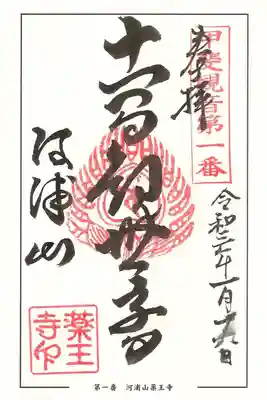 甲斐観音第一番
奉拝
令和年一月日
十一面観世音
河浦山
薬王
寺印
第一番 河浦山薬王寺